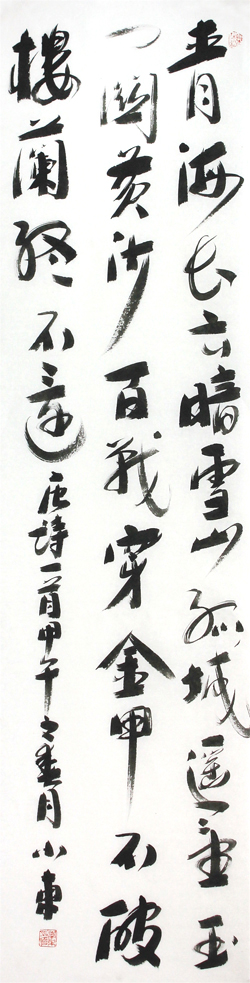 青海长云暗雪山孤城遥望玉
门關黄沙百戰穿金甲不破
樓蘭終不還 唐詩一首甲午之春月小東